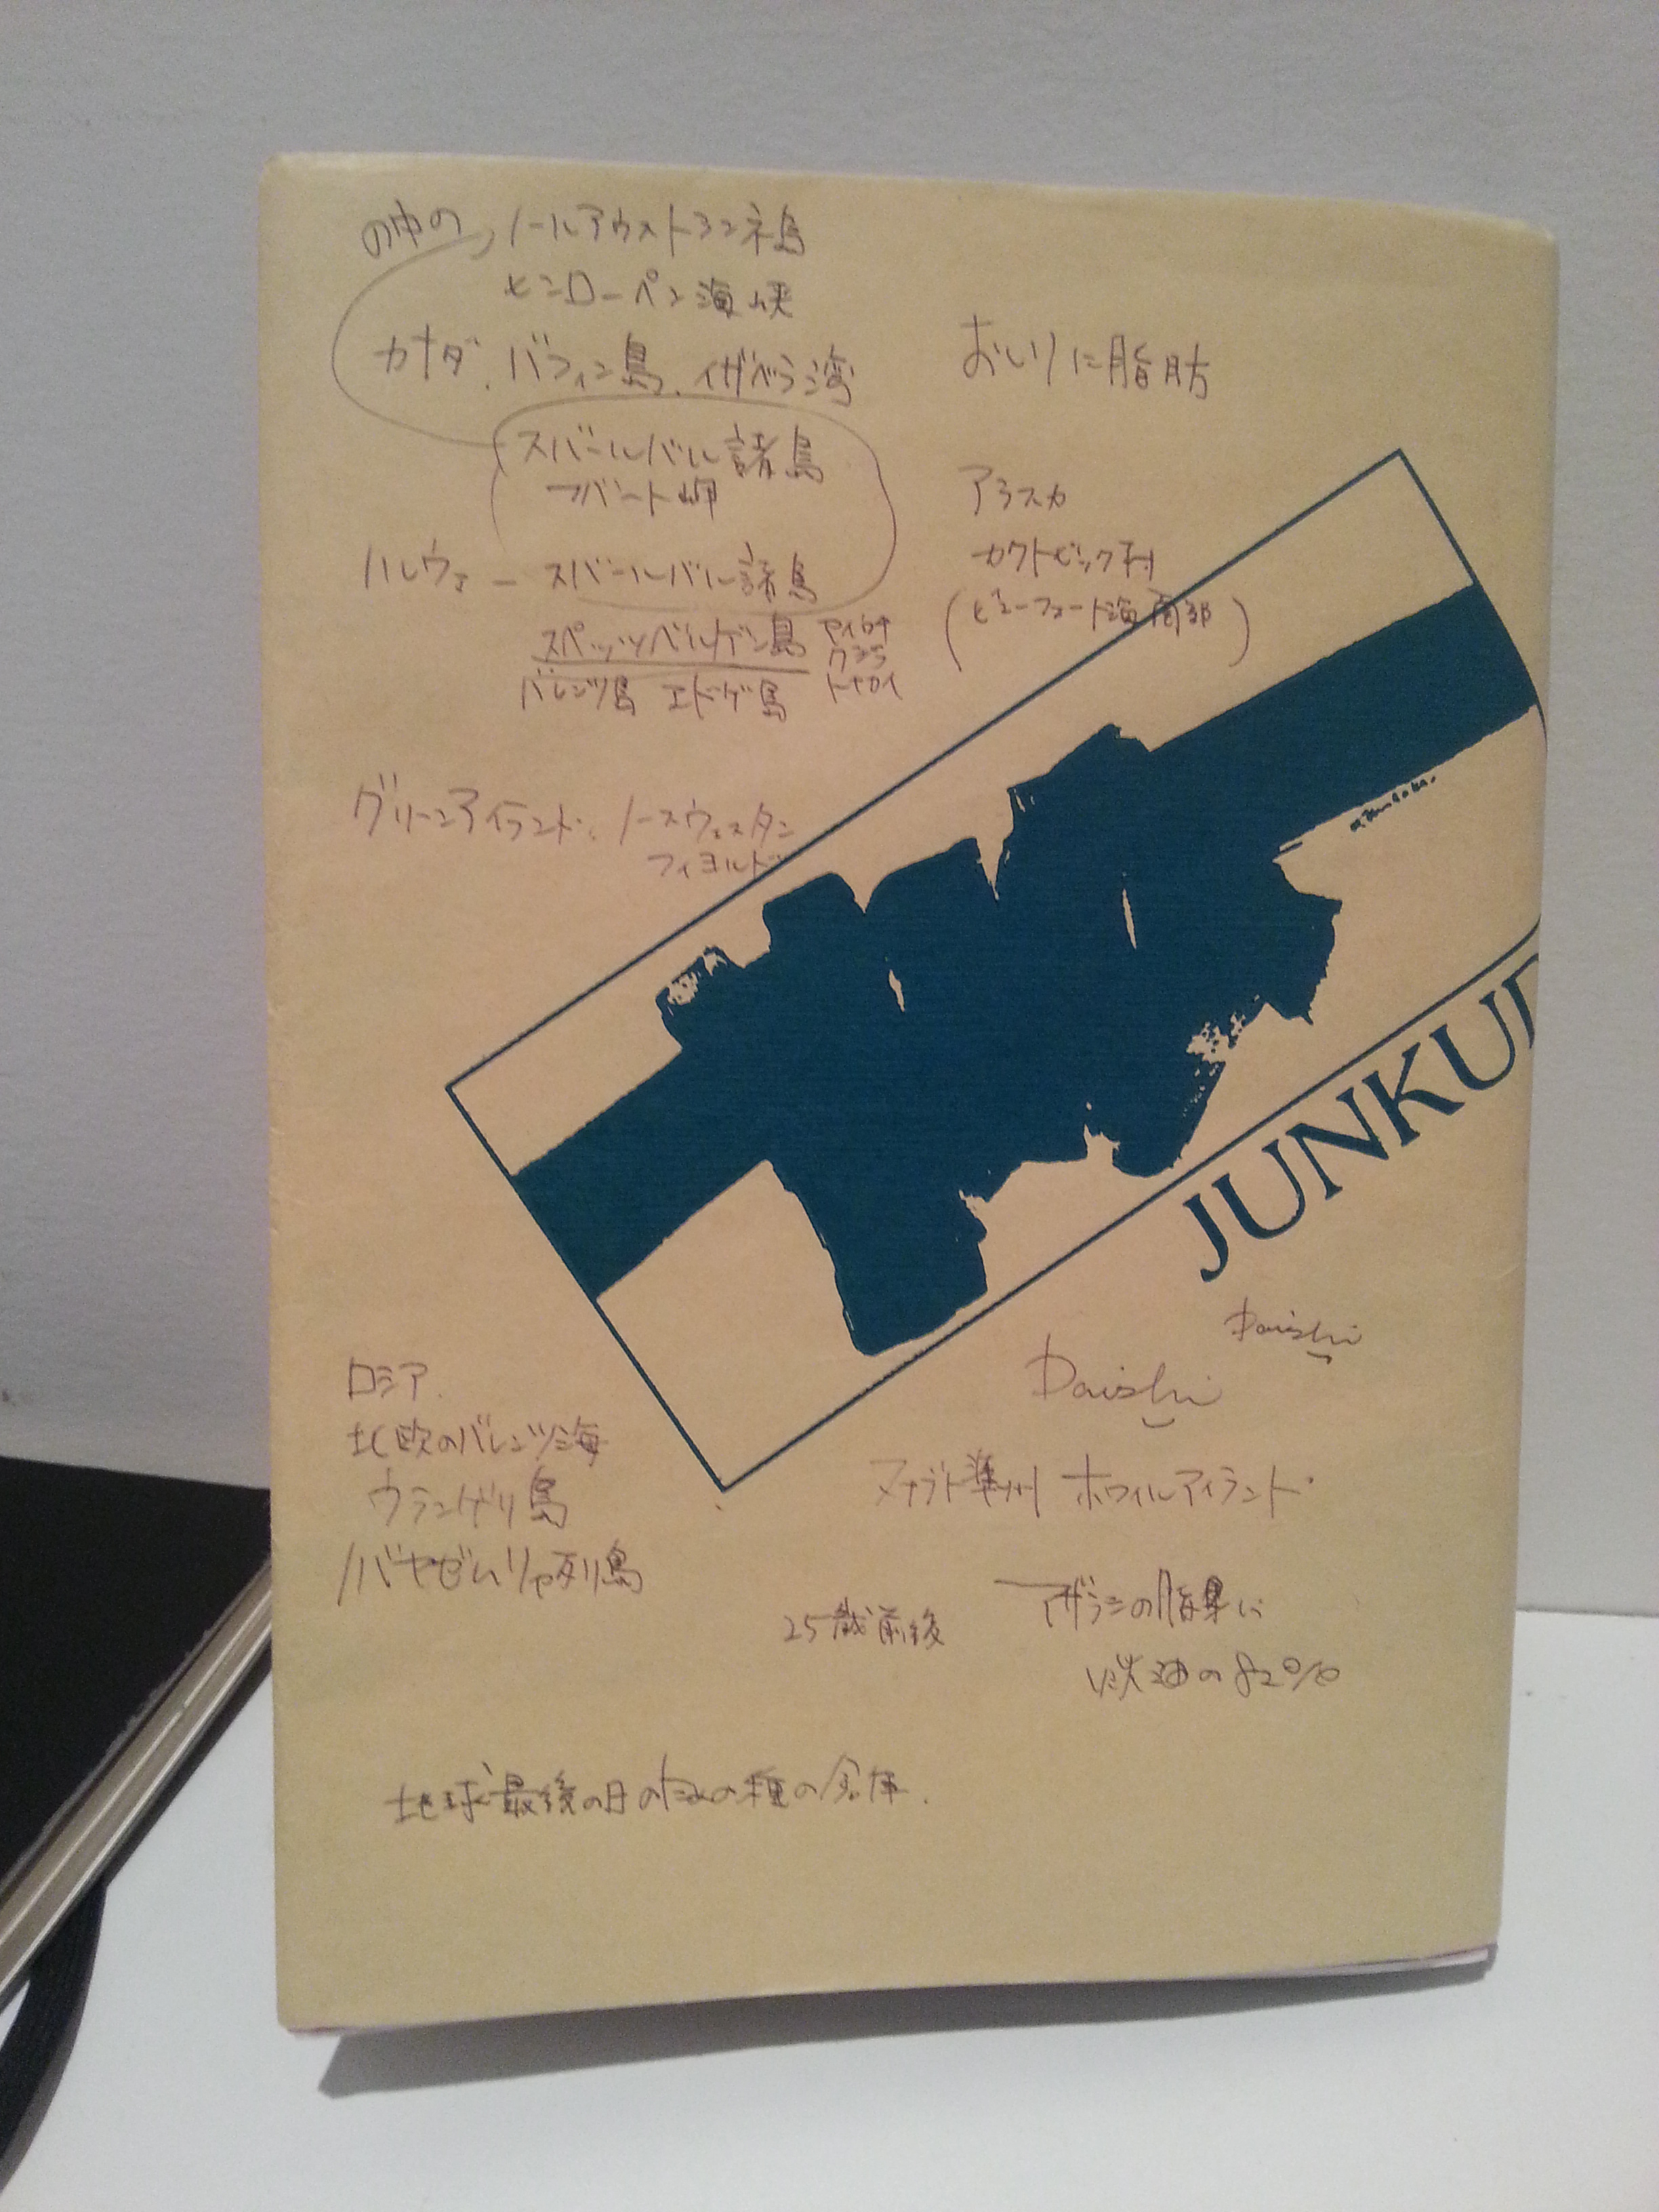 の中の ノールアウストランネ島
ヒンローペン海峡
カナダ、バフィン島、イザベラ湾
スバールバル諸島
フバート岬
ノルウェー スバールバル諸島
スペッツベルゲン島
バレンツ島 エドゲ島
セイウチ
クジラ
トナカイ
おしりに脂肪
アラスカ
カクトビック村
(ビューフォート海南部)
グリーンアイランド、ノースウェスタン
フィヨルド
JUNKUD
Daishi
Daishi
ロシア
北欧のバレンツ海
ウランゲリ島
ノバヤゼムリャ列島
ヌナブト準州 ホワイルアイランド
25歳前後
アザラシの脂
の82%
地球最後の日のための種の倉庫.